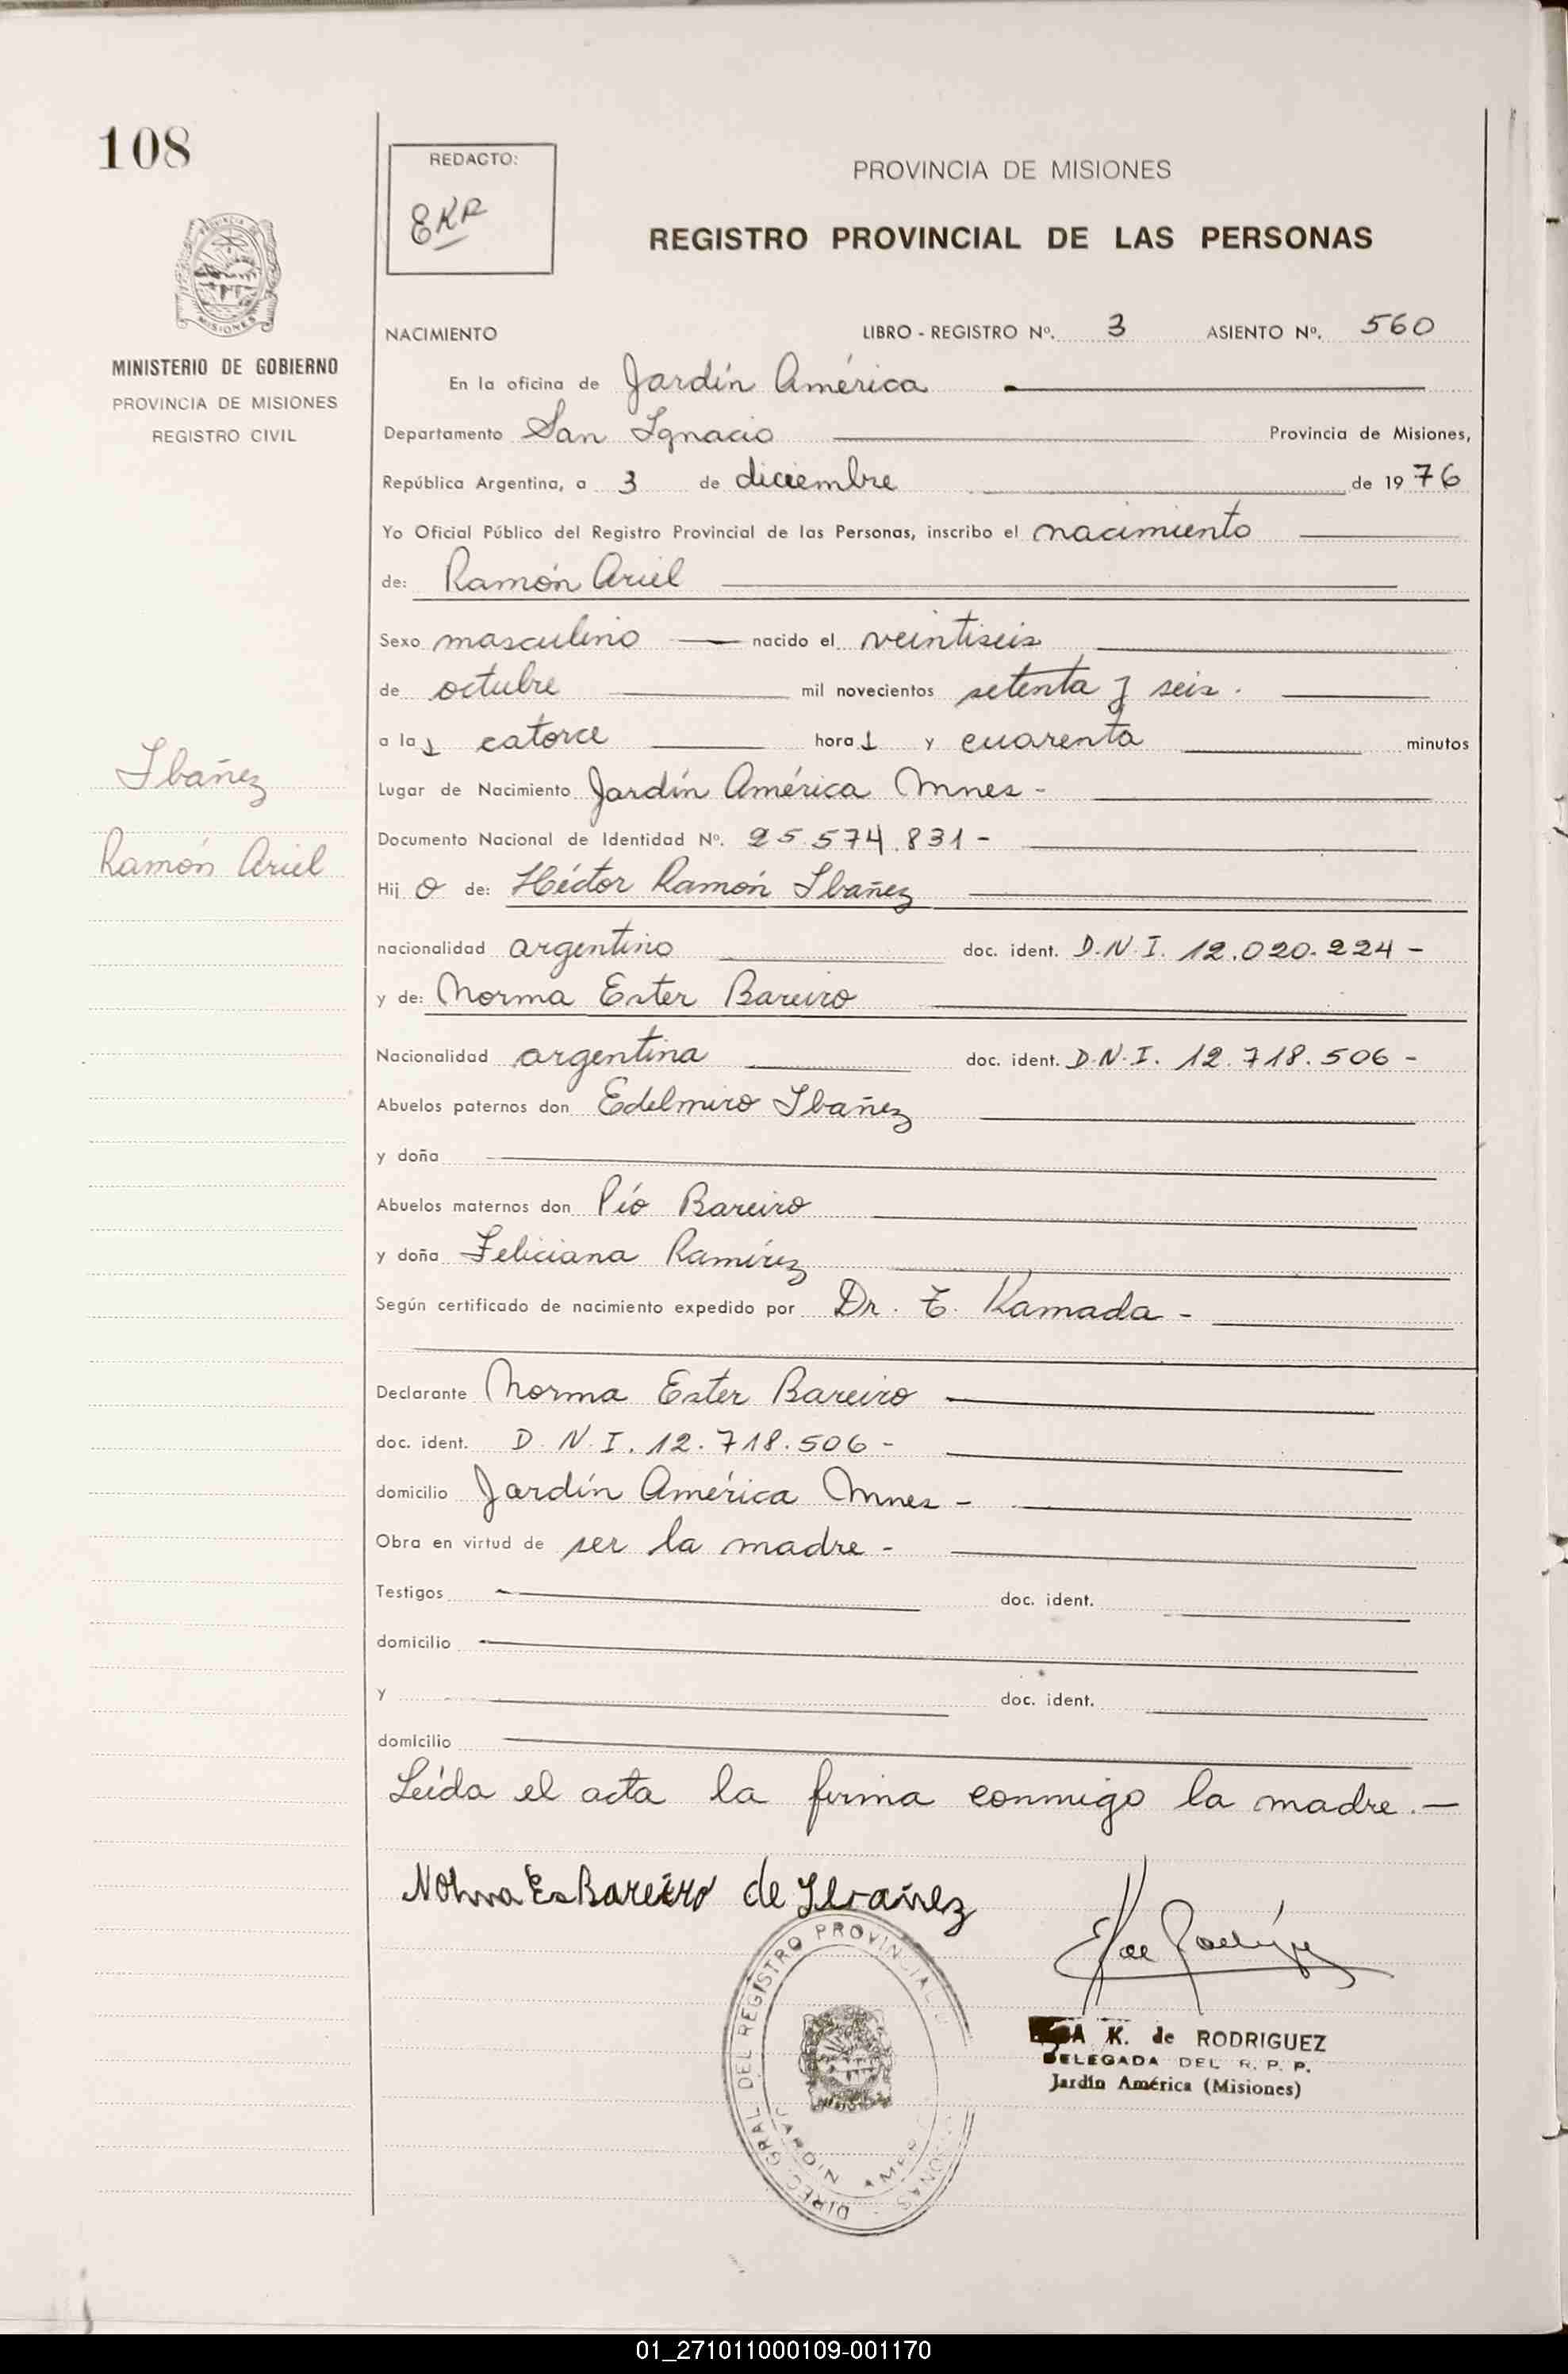 108
REDACTO:
EKR
PROVINCIA DE MISIONES
REGISTRO PROVINCIAL DE LAS PERSONAS
MISIONES
MINISTERIO DE GOBIERNO
PROVINCIA DE MISIONES
REGISTRO CIVIL
NACIMIENTO LIBRO - REGISTRO Nº. 3 ASIENTO Nº. 560
En la oficina de Jardín América
Departamento San Ignacio Provincia de Misiones,
República Argentina, a 3 de diciembre de 1976
Yo Oficial Público del Registro Provincial de las Personas, inscribo el nacimiento
de: Ramón Ariel
Sexo masculino nacido el veintiseis
de octubre mil novecientos setenta y seis.
a las catorce horas y cuarenta minutos
Ibañez
Ramón Ariel
Lugar de Nacimiento Jardín América Mnes -
Documento Nacional de Identidad Nº. 25.574.831 -
Hijo de: Héctor Ramón Ibañez
nacionalidad argentino doc. ident. D.N.I. 12.020.224 -
y de: Norma Ester Bareiro
Nacionalidad argentina doc. ident. D.N.I. 12.718.506 -
Abuelos paternos don Edelmiro Ibañez
y doña
Abuelos maternos don Pío Bareiro
y doña Feliciana Ramírez
Según certificado de nacimiento expedido por Dr. T. Kamada -
Declarante Norma Ester Bareiro
doc. ident. D.N.I. 12.718.506 -
domicilio Jardín América Mnes -
Obra en virtud de ser la madre -
Testigos doc. ident.
domicilio
y doc. ident.
domicilio
Leída el acta la firma conmigo la madre.-
Norma Es Bareiro de Ibañez
DIREC. GRAL. DEL REGISTRO PROVINCIAL
JARDIN
A K. de RODRIGUEZ
DELEGADA DEL R. P. P.
Jardín América (Misiones)
01_271011000109-001170